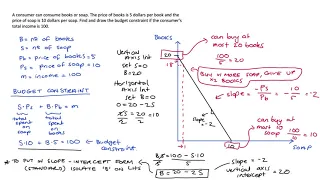 A consumer can consume books or soap. The price of books is 5 dollars per book and the
price of soap is 10 dollars per soap. Find and draw the budget constraint if the consumer's
total income is 100.
B = nº of books
S = nº of soap
Pb = price of books = 5
Ps = price of soap = 10
m = income = 100
BUDGET CONSTRAINT
S·Ps + B·Pb = m
total spent on soap
total spent on books
total income
S·10 + B·5 = 100
Budget constraint
* TO PUT IN SLOPE-INTERCEPT FORM
(STANDARD) ISOLATE 'B' ON LHS
Vertical Axis Int
set S=0
B=20
Horizontal Axis Int
set B=0
0 = 20-2S
2S = 20
2 2
S = 10
B5 = 100 - S·10
5 5 5
B = 20 - 2S
slope = -2
vertical axis intercept = 20
BOOKS
20
18
1
10
SOAP
can buy at most 20 books
100/5 = 20
BUY 1 MORE SOAP, GIVE UP 2 BOOKS
slope = -Ps/Pb = -10/5 = -2
slope = -2
can buy at most 10 soap
100/10 = 10